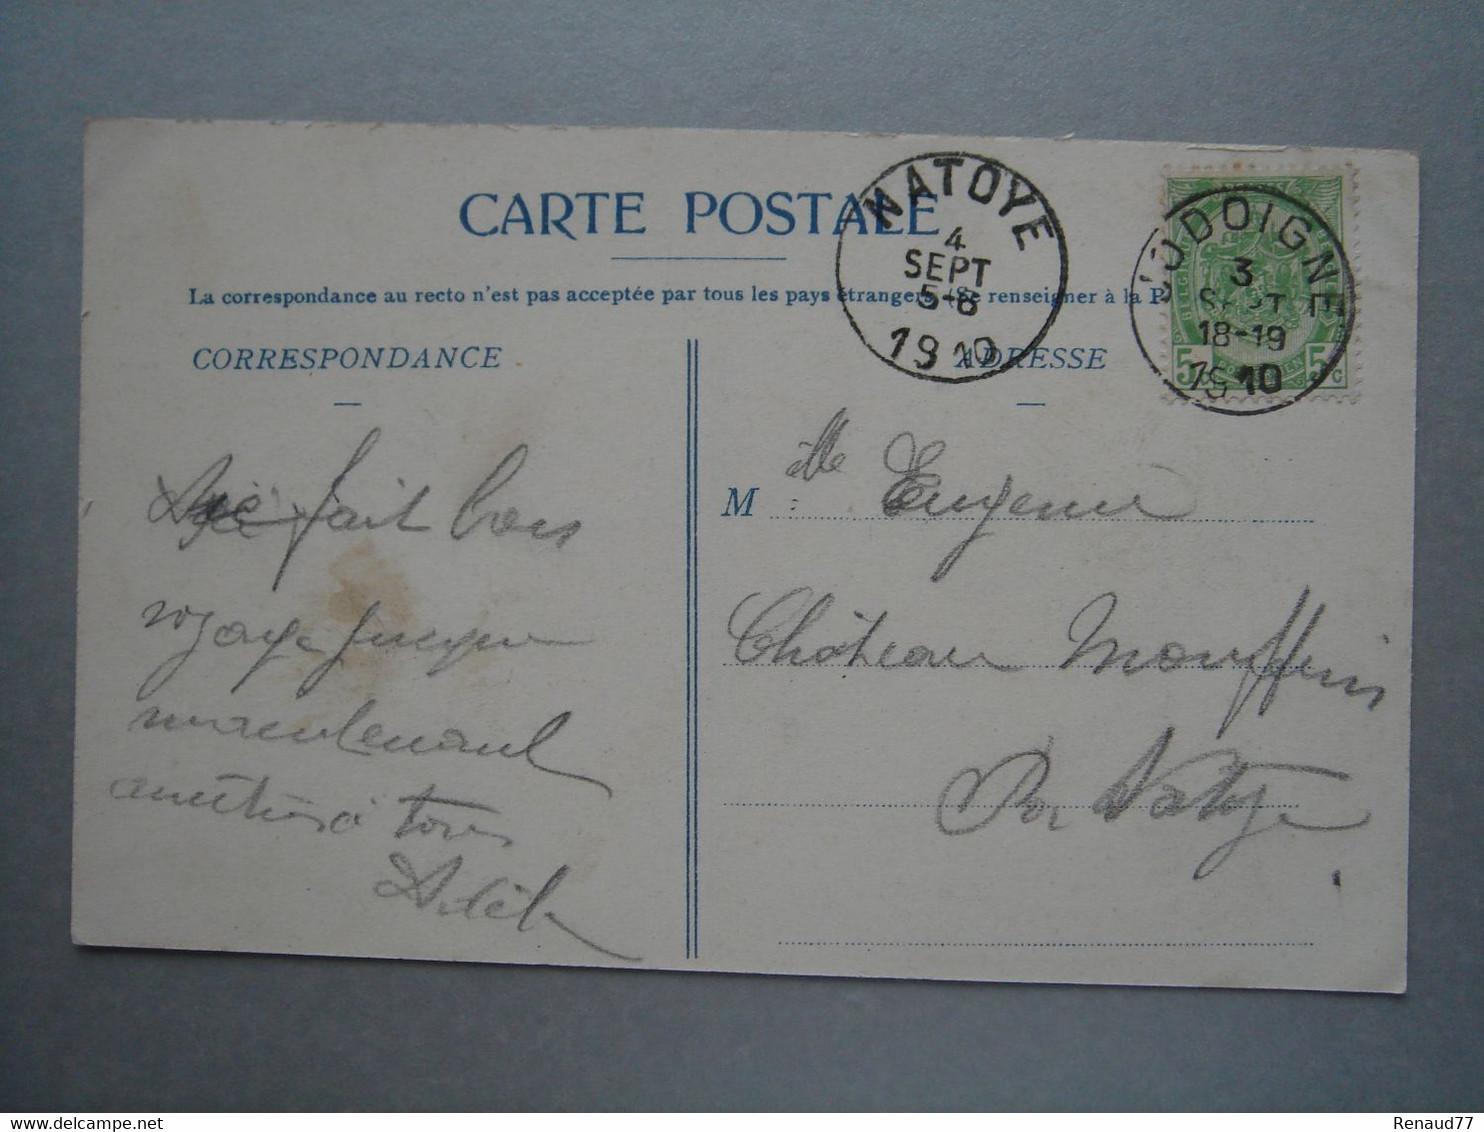 CARTE POSTALE
La correspondance au recto n'est pas acceptée par tous les pays étrangers (Se renseigner à la P
CORRESPONDANCE
ADRESSE
NATOYE
4
SEPT
5-6
1910
JODOIGNE
3
SEPT
18-19
1910
5c 5c
fait bon
voyage jusque
maintenant
amitiés à tous
Adèle
M elle Eugenie
Château Mouffrin
Par Natoye
Renaud77